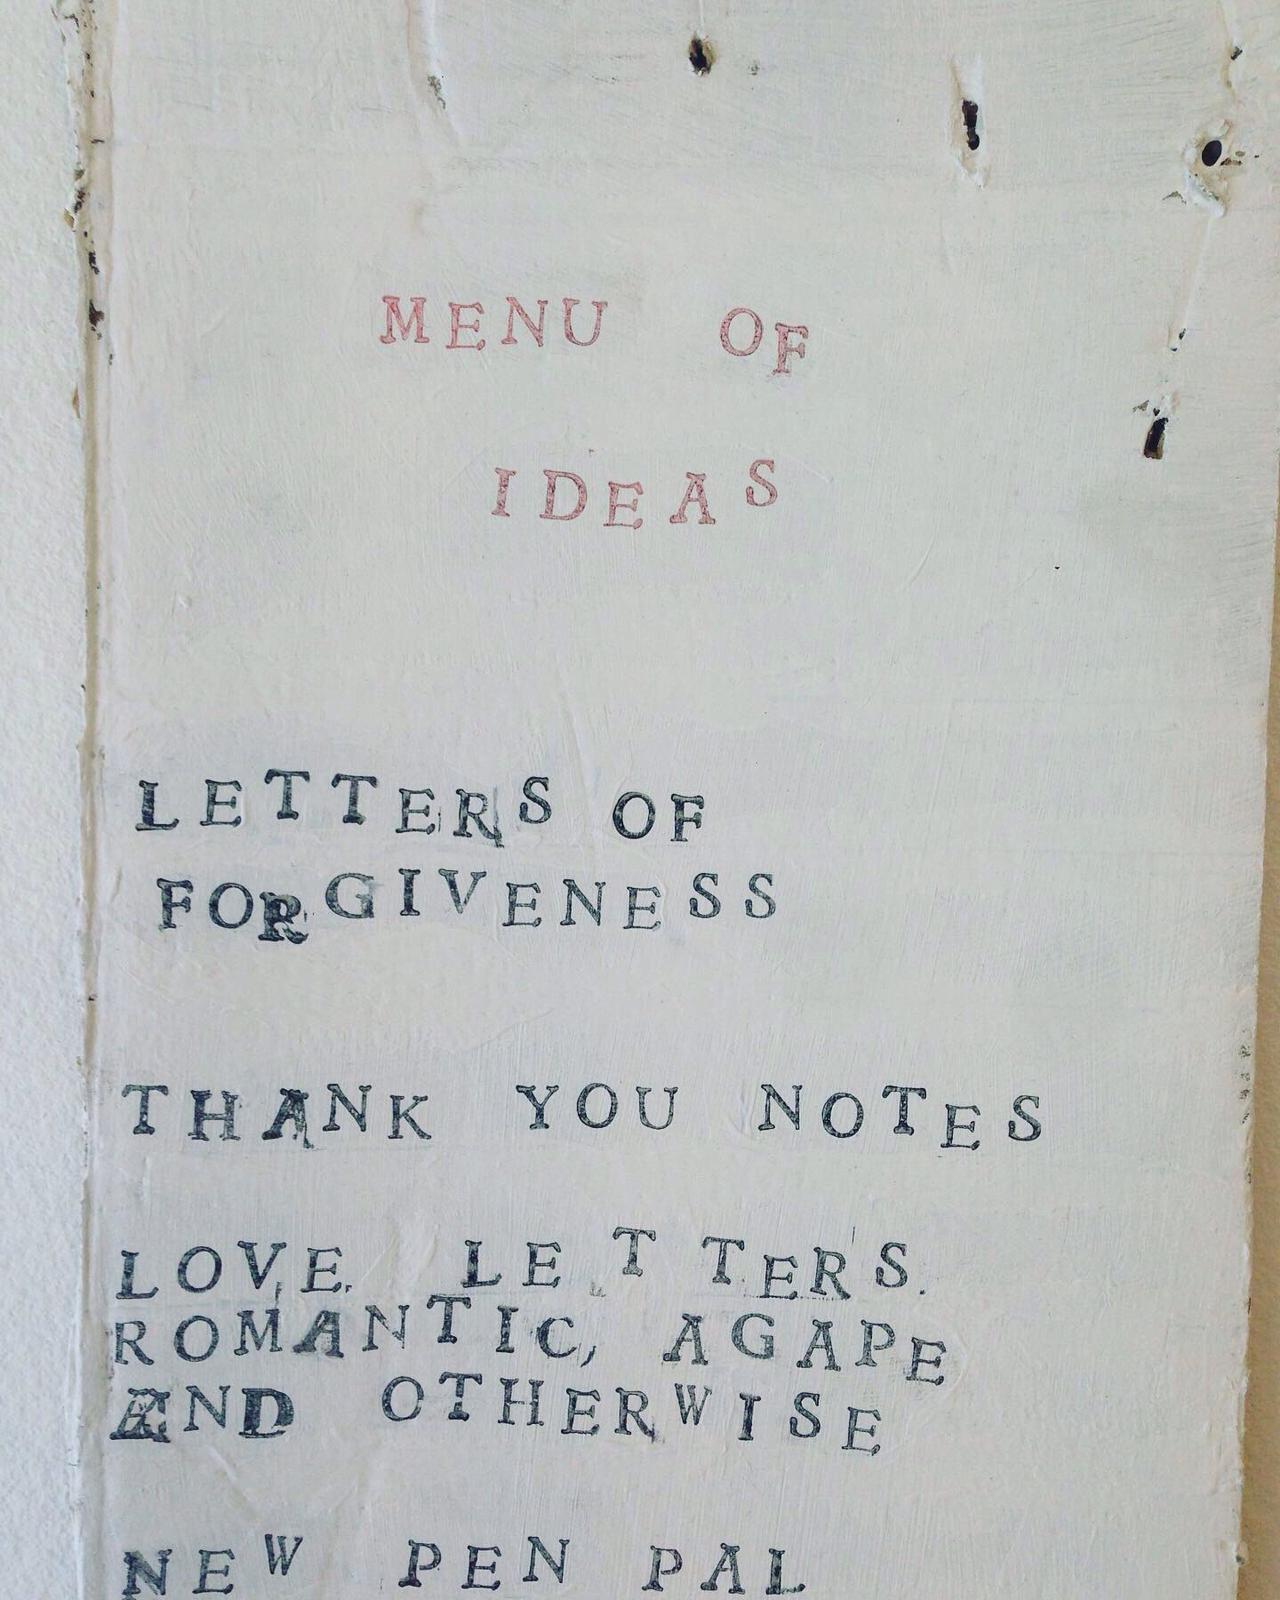 MENU OF
IDEAS
LETTERS OF
FORGIVENESS
THANK YOU NOTES
LOVE LETTERS.
ROMANTIC, AGAPE
AND OTHERWISE
NEW PEN PAL